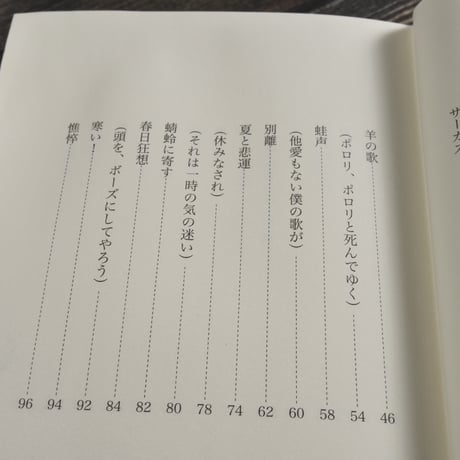 サーカス
羊の歌 46
(ポロリ、ポロリと死んでゆく) 54
蛙声 58
(他愛もない僕の歌が) 60
別離 62
夏と悲運 74
(休みなされ) 78
(それは一時の気の迷い) 80
蜻蛉に寄す 82
春日狂想 84
(頭を、ボーズにしてやろう) 92
寒い! 94
憔悴 96